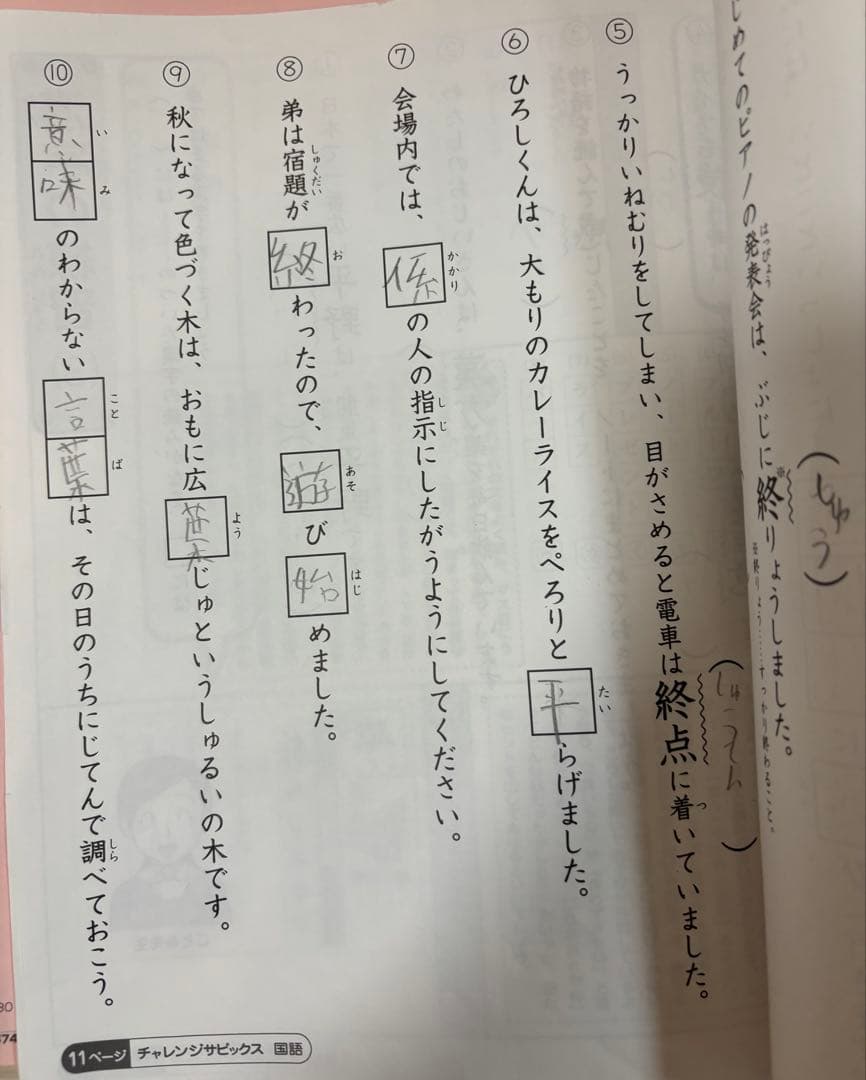 じめてのピアノの発表会は、ぶじに終りょうしました。
はっぴょう
※
(しゅう)
※終りょう……すっかり終わること。
⑤ うっかりいねむりをしてしまい、目がさめると電車は終点に着いていました。
つ
(しゅうてん)
⑥ ひろしくんは、大もりのカレーライスをぺろりと平らげました。
たい
⑦ 会場内では、係の人の指示にしたがうようにしてください。
かかり
しじ
⑧ 弟は宿題が終わったので、遊び始めました。
しゅくだい
お
あそ
はじ
⑨ 秋になって色づく木は、おもに広葉じゅというしゅるいの木です。
よう
⑩ 意味のわからない言葉は、その日のうちにじてんで調べておこう。
い
み
こと
ば
しら
11ページ チャレンジサピックス 国語